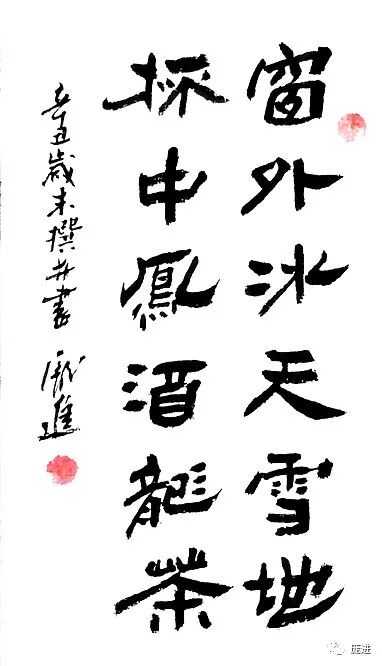 窗外冰天雪地
杯中鳳酒龍茶
辛丑歲末撰并書 龐進
庞进